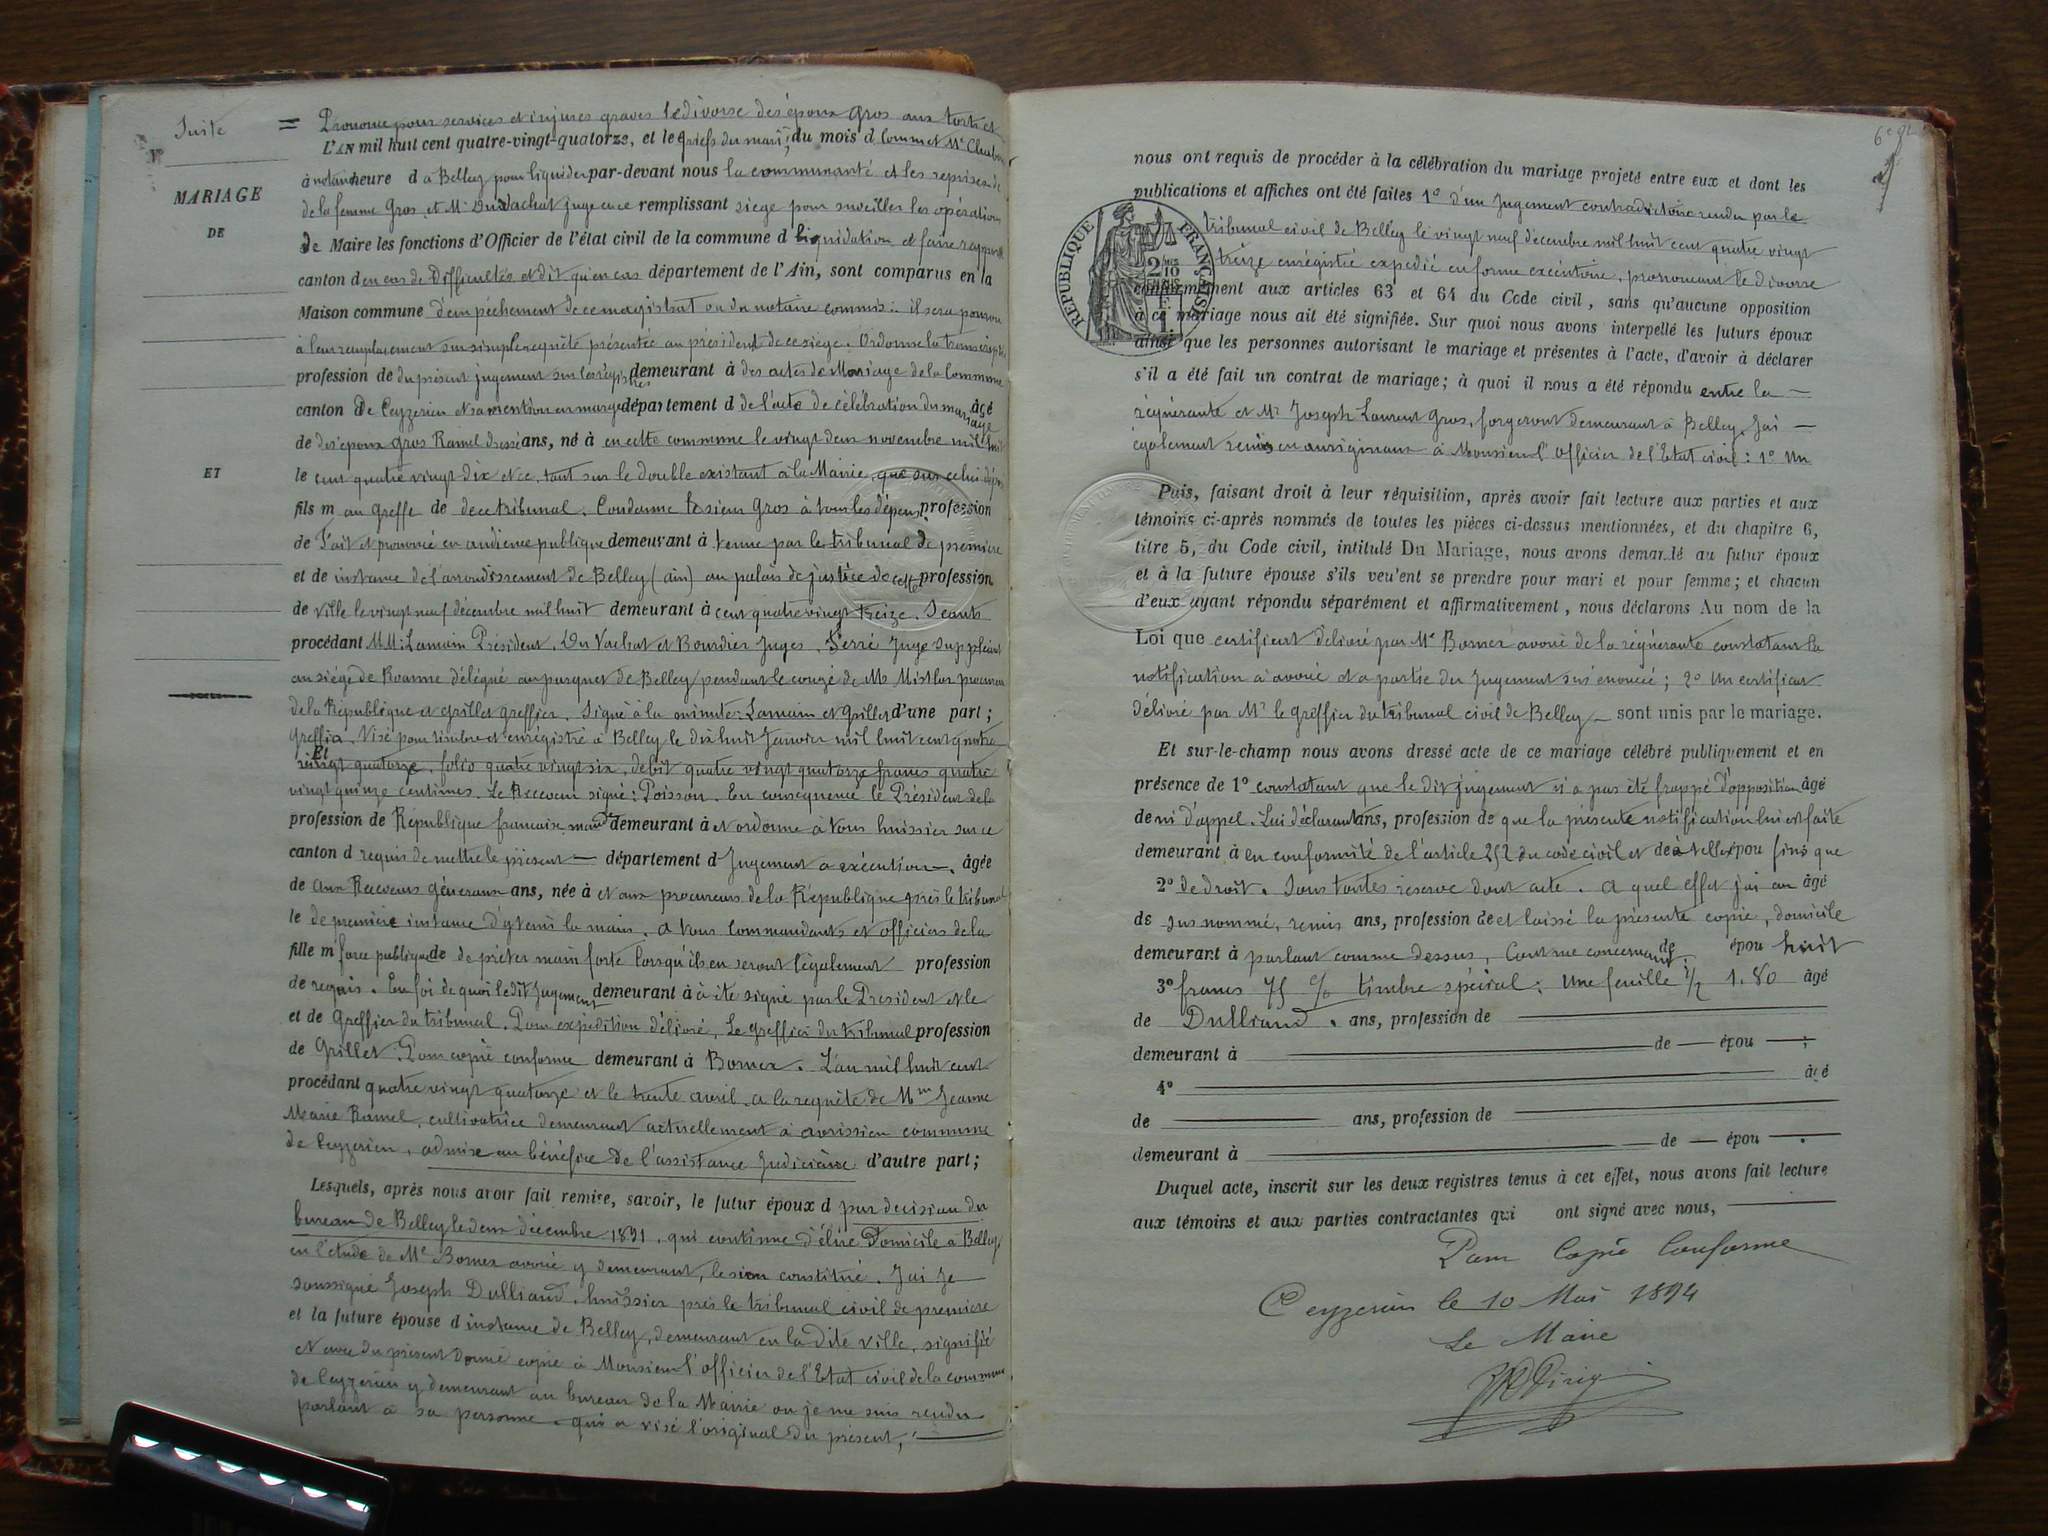 Suite
MARIAGE
DE
ET
= Prononce pour sevices et injures graves le divorse des époux Gros aux torts et
L'AN mil huit cent quatre-vingt-quatorze, et le griefs du mari; du mois d Commet Me
à notaire heure d à Belley pour liquider par-devant nous la communauté et les reprises de
de la femme Gros et Mr Du Vachat Juge en ce remplissant siege pour surveiller les opérations
de Maire les fonctions d'Officier de l'état civil de la commune d liquidation et faire rapport
canton d en cas de Difficultés et dit qu'en cas département de l'Ain, sont comparus en la
Maison commune d'empêchement de ce magistrat ou du notaire commis: il sera pourvu
à leur remplacement sur simple requête présentée au président de ce siege. Ordonne la transcription
profession de du présent jugement sur les régistres demeurant à des actes de Mariage de la Commune
canton de Ceyzerieu et sa mention en marge département d de l'acte de célébration du mariage âgé
de des époux Gros Ramel dressé ans, né à en cette commune le vingt deux novembre mil huit
le cent quatre vingt dix et ce, tant sur le double existant à la Mairie, que sur celui déposé
fils m au Greffe de de ce tribunal. Condamne le sieur Gros à tous les dépens. profession
de Fait et prononcé en audience publique demeurant à tenue par le tribunal de première
et de instance de l'arrondissement de Belley (ain) au palais de justice de cette profession
de ville le vingt neuf décembre mil huit demeurant à cent quatre vingt treize. Seants
procédant MM: Lamain Président, Du Vachat et Bourdier Juges, Serré Juge suppléant
au siége de Roanne délégué au parquet de Belley pendant le congé de Mr procureur
de la République et Grillet greffier. Signé à la minute: Lamain et Grillet d'une part;
Et
greffier. Visé pour timbre et enrégistré à Belley le dix huit Janvier mil huit cent quatre
vingt quatorze, folio quatre vingt six, debit quatre vingt quatorze francs quatre
vingt quinze centimes. Le Receveur signé: Poisson. En consequence le Président de la
profession de République francaise mande demeurant à et ordonne à tous huissier sur ce
canton d requis de mettre le présent — département d Jugement a exécution —. âgée
de aux Receveurs Géneraux ans, née à et aux procureurs de la République près le tribunal
le de première instance d'y tenir la main. a tous commandants et officiers de la
fille m force publique de de prêter main forte lorsqu'ils en seront légalement profession
de requis. En foi de quoi le dit Jugement demeurant à à été signé par le President et le
et de Greffier du tribunal. Pour expédition délivré, Le greffier du tribunal profession
de Grillet. Pour copie conforme demeurant à Bornex. L'an mil huit cent
procédant quatre vingt quatorze et le trente avril a la requête de Mme Jeanne
Marie Ramel, cultivatrice demeurant actuellement à avrissieu commune
de Ceyzerieu, admise au bénéfice de l'assistance Judiciaire d'autre part;
Lesquels, après nous avoir fait remise, savoir, le futur époux d par decision du
bureau de Belley le deux décembre 1891, qui continue d'élire Domicile a Belley,
en l'étude de Me Bornex avoué y demeurant, le sien constitué. J'ai Je
soussigné Joseph Dulliand, huissier près le tribunal civil de première
et la future épouse d instance de Belley, demeurant en la dite ville, signifié
et avec du présent donné copie à Monsieur l'officier de l'Etat civil de la commune
de Ceyzerieu y demeurant au bureau de la Mairie ou je me suis rendu
parlant à sa personne qui a visé l'original du présent,
nous ont requis de procéder à la célébration du mariage projeté entre eux et dont les
publications et affiches ont été faites 1º d'un Jugement contradictoire rendu par le
tribunal civil de Belley le vingt neuf décembre mil huit cent quatre vingt
treize enrégistré expedié en forme exécutoire, prononcant le divorse
conformément aux articles 63 et 64 du Code civil, sans qu'aucune opposition
à ce mariage nous ait été signifiée. Sur quoi nous avons interpellé les futurs époux
ainsi que les personnes autorisant le mariage et présentes à l'acte, d'avoir à déclarer
s'il a été fait un contrat de mariage; à quoi il nous a été répondu entre la —
réquérante et Mr Joseph Laurent Gros, forgeront demeurant à Belley. J'ai —
également remis en aurigineaux à Monsieur l'officier de l'Etat civil: 1º Un
RÉPUBLIQUE FRANÇAISE
2/10 EN SUS
1 F.
Puis, faisant droit à leur réquisition, après avoir fait lecture aux parties et aux
témoins ci-après nommés de toutes les pièces ci-dessus mentionnées, et du chapitre 6,
titre 5, du Code civil, intitulé Du Mariage, nous avons demandé au futur époux
et à la future épouse s'ils veulent se prendre pour mari et pour femme; et chacun
d'eux ayant répondu séparément et affirmativement, nous déclarons Au nom de la
Loi que certificat délivré par Me Bornex avoué de la réquérante constatant la
notification à avoué et a partie du Jugement sus énoncé; 2º Un certificat
délivré par Mr le greffier du tribunal civil de Belley — sont unis par le mariage.
Et sur-le-champ nous avons dressé acte de ce mariage célébré publiquement et en
présence de 1º constatant que le dit jugement n'a pas été frappé d'opposition âgé
de ni d'appel. Lui déclarant ans, profession de que la présente notification lui est faite
demeurant à en conformité de l'article 252 du code civil et de à telle épou fins que
2º de droit. Sous toutes reserve dont acte. a quel effet j'ai au âgé
de sus nommé, remis ans, profession de et laissé la présente copie, domicile
demeurant à parlant comme dessus, Cout sur concernant de épou huit
3º francs 75 c/o timbre spécial: Une feuille 1/2 1.80 âgé
de Dulliand. ans, profession de
demeurant à de — épou — ;
4º âgé
de ans, profession de
demeurant à de — épou — .
Duquel acte, inscrit sur les deux registres tenus à cet effet, nous avons fait lecture
aux témoins et aux parties contractantes qui ont signé avec nous,
Pour Copie Conforme
Ceyzerieu le 10 Mai 1894
Le Maire